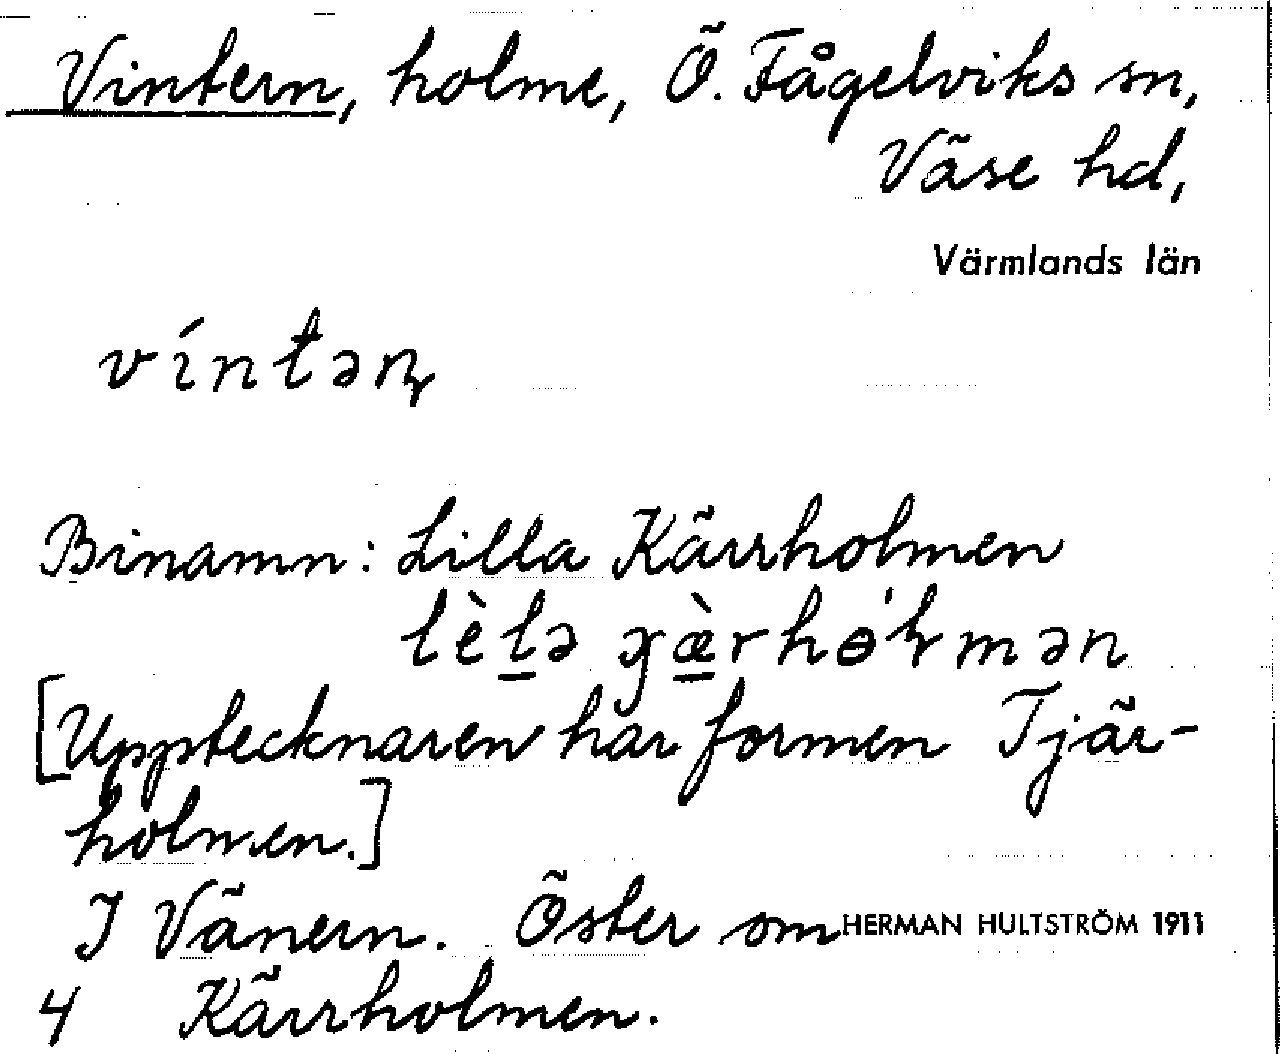 Vintern, holme, Ö. Fågelviks sn,
Väse hd,
Värmlands län
víntəɳ
Binamn: Lilla Kärrholmen
[Upptecknaren har formen Tjär-
holmen.]
I Vänern. Öster om HERMAN HULTSTRÖM 1911
4 Kärrholmen.